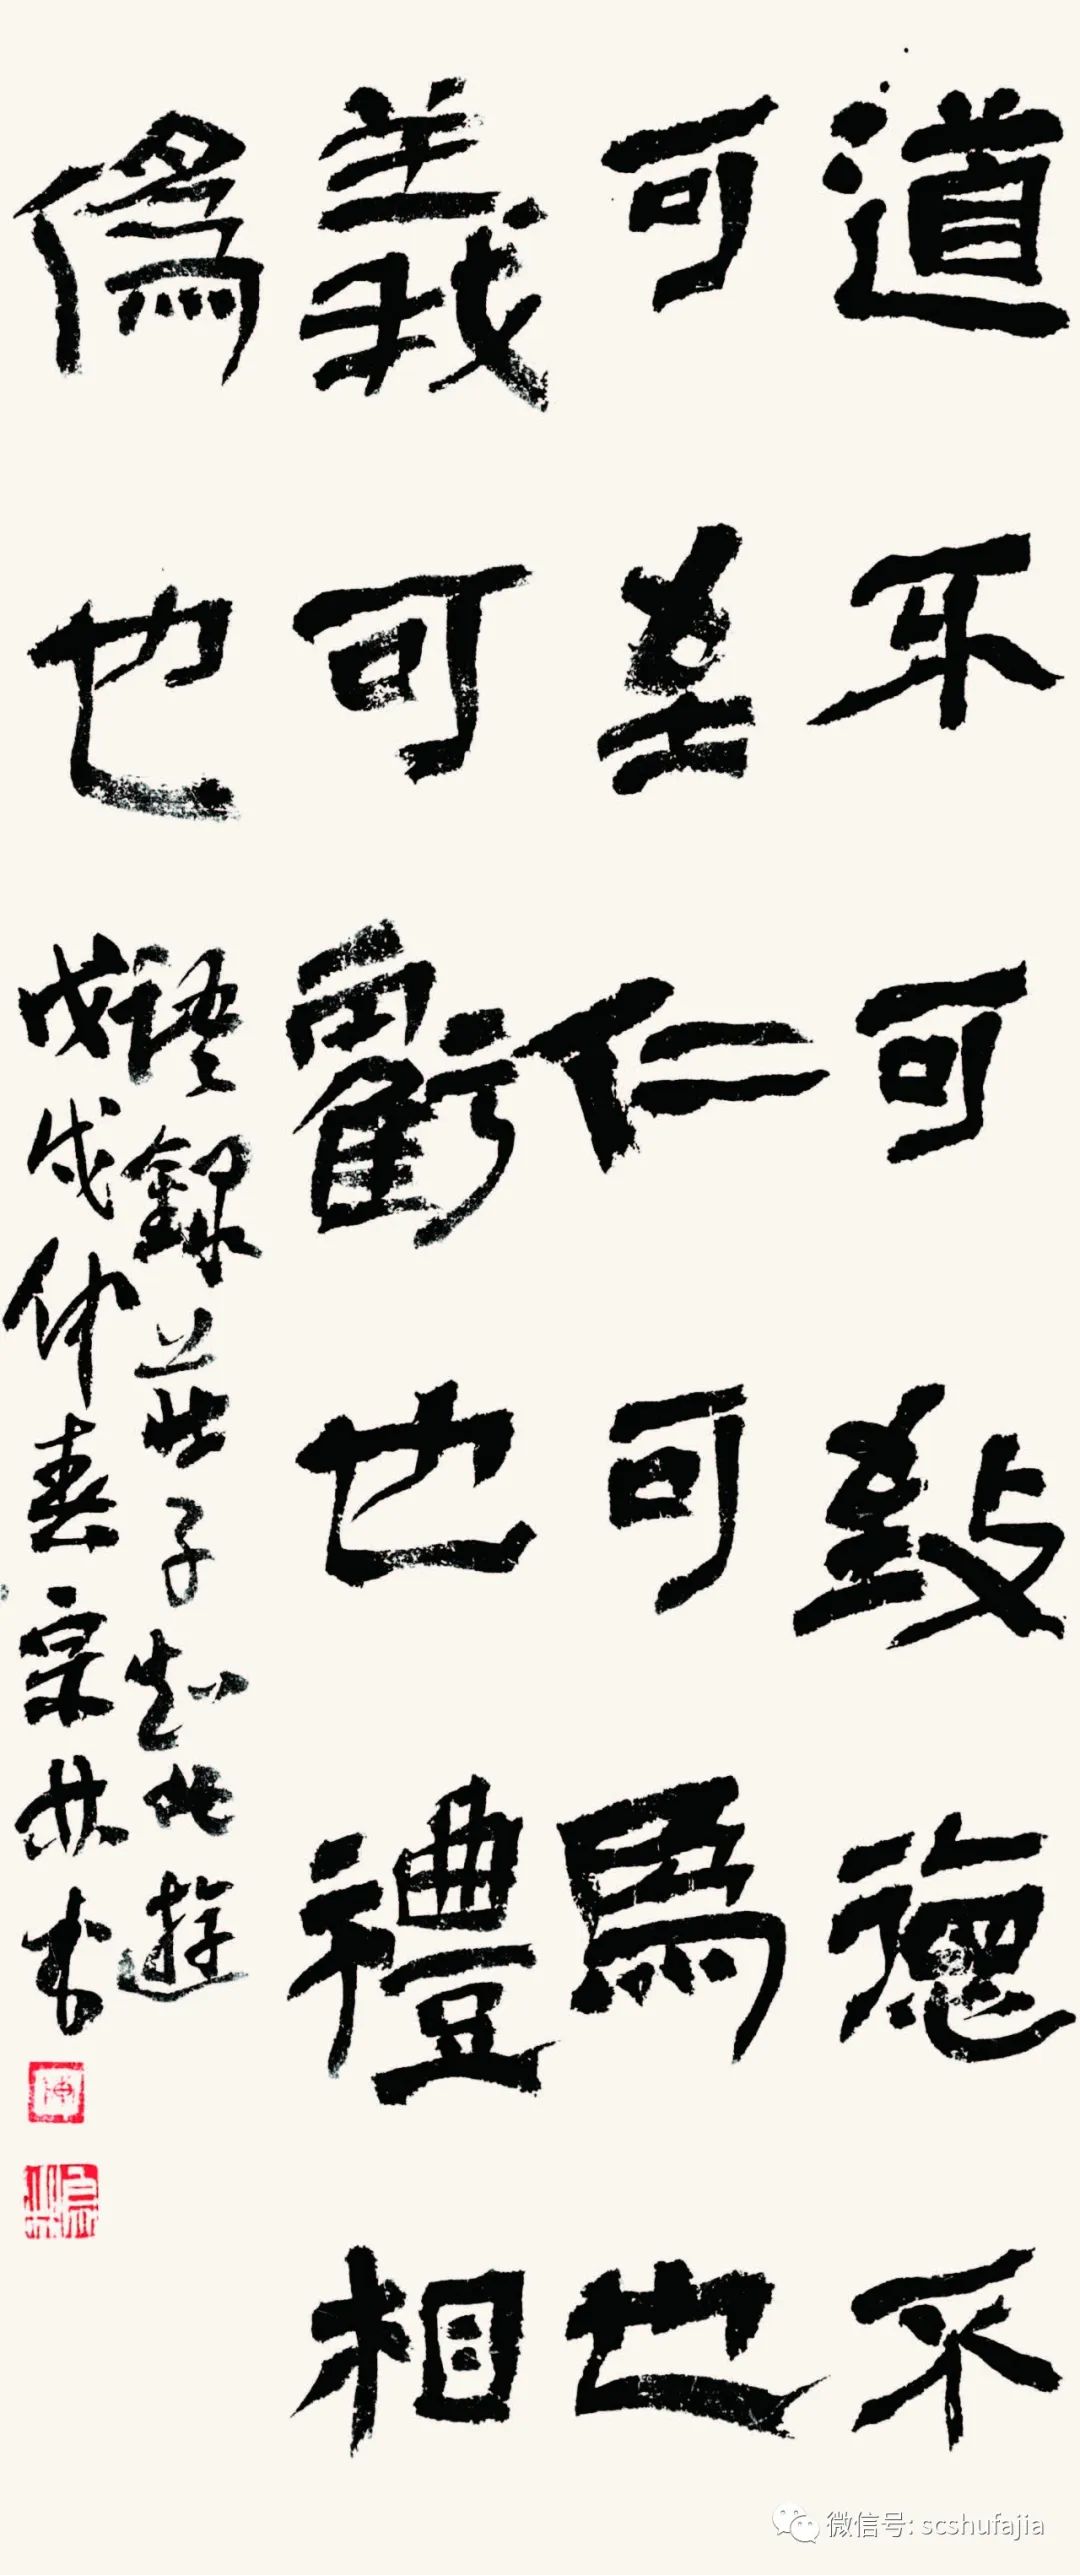 道不可致德不
可至仁可爲也
義可虧也禮相
僞也
錄莊子知北遊
戊戌仲春宗林书
微信号: scshufajia